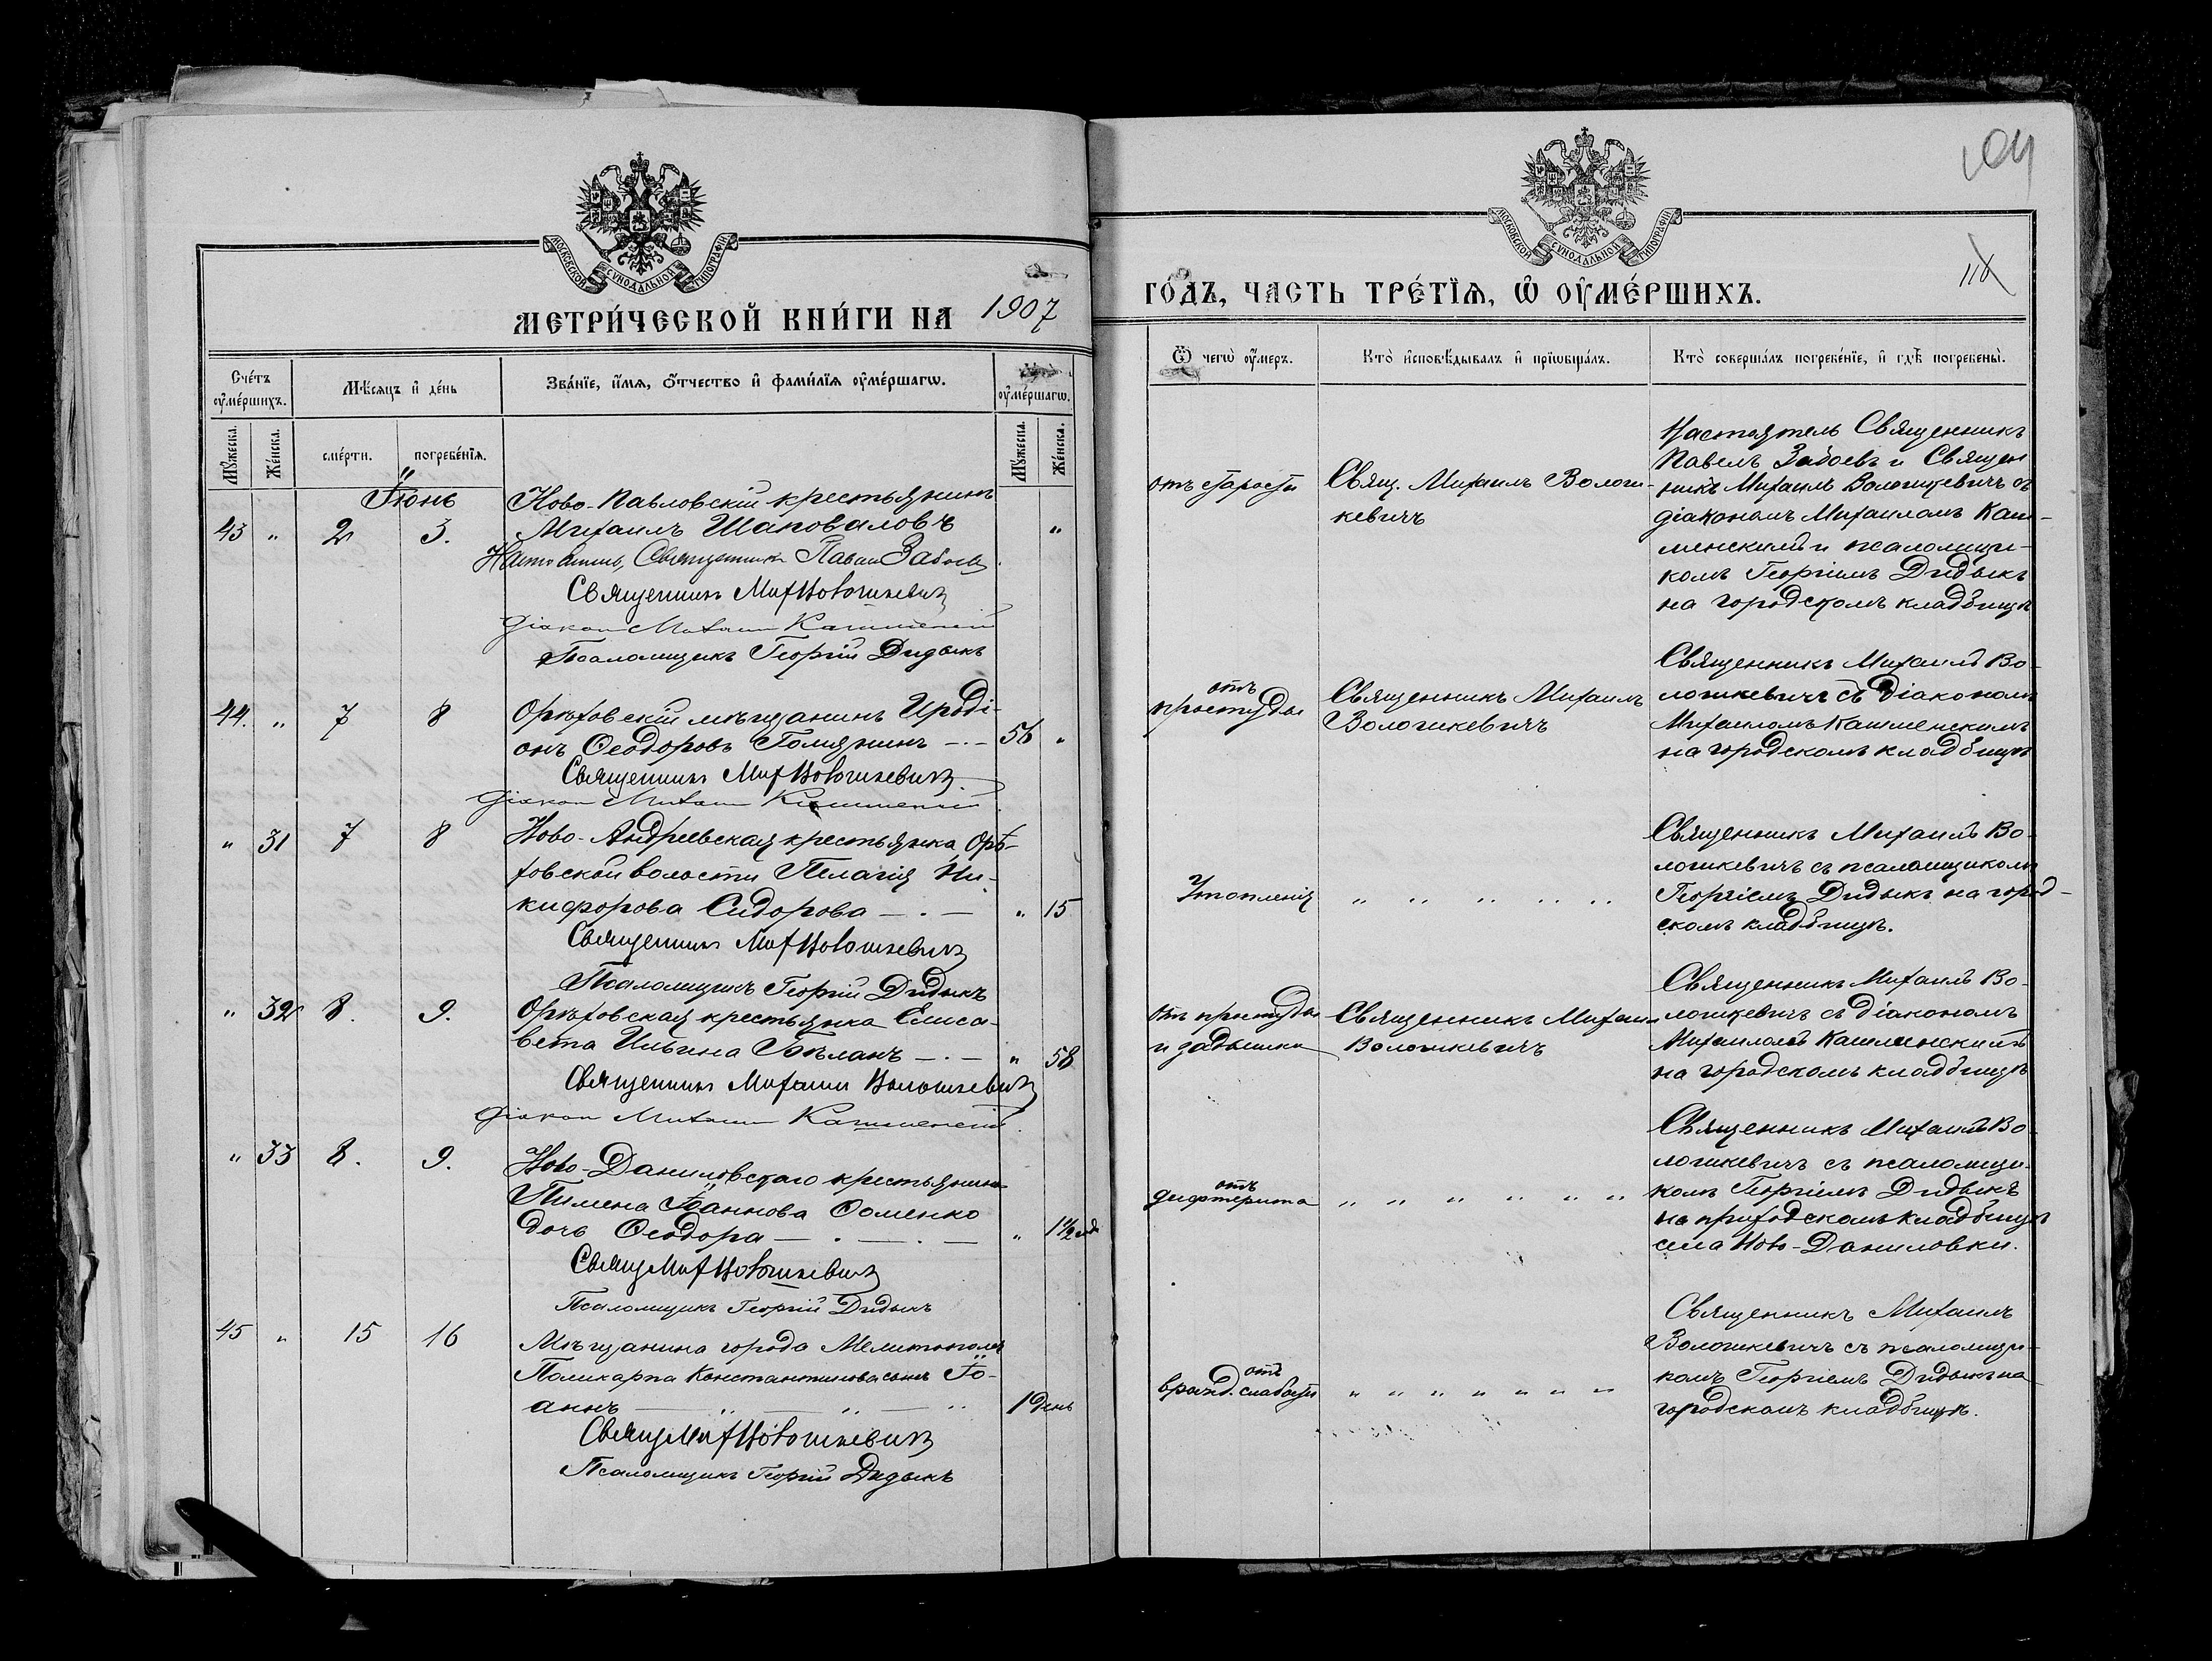 МОСКОВСКОЙ СѴНОДАЛЬНОЙ ТИПОГРАФІИ
МЕТРИ́ЧЕСКОЙ КНИ́ГИ НА 1907
Сче́тъ оу҆ме́ршихъ.
Мѣ́сяцъ и҆ де́нь
Зва́нїе, и҆́мя, ѻ҆́тчество и҆ фами́лїя оу҆ме́ршагѡ.
оу҆ме́ршагѡ.
Мꙋ́жеска.
Же́нска.
сме́рти.
погребе́нїя.
Мꙋ́жеска.
Же́нска.
Іюнь
43 " 2 3.
Ново-Павловскій крестьянинъ
Михаилъ Шаповаловъ "
Настоятель, Священникъ Павелъ Забоевъ
Священникъ Мих Волошкевичъ
Діаконъ Михаилъ Кашменскій
Псаломщикъ Георгій Дидыкъ
44. " 7 8
Орѣховскій мѣщанинъ Ироді-
онъ Ѳеодоровъ Голиянинъ 56 "
Священникъ Мих Волошкевичъ
Діаконъ Михаилъ Кашменскій
" 31 7 8
Ново-Андреевская крестьянка, Орѣ-
ховской волости Пелагія Ни-
кифорова Сидорова " 15
Священникъ Мих Волошкевичъ
Псаломщикъ Георгій Дидыкъ
" 32 8. 9.
Орѣховская крестьянка Елиса-
вета Ильина " 58
Священникъ Михаилъ Волошкевичъ
Діаконъ Михаилъ Кашменскій
" 33 8. 9.
Ново-Даниловскаго крестьянина
Пимена Іоаннова Ѳоменко
дочь Ѳеодора " 1½ год
Свящ Мих Волошкевичъ
Псаломщикъ Георгій Дидыкъ
45 " 15 16
Мѣщанина города Мелитополя
Поликарпа Константинова сынъ Іо-
аннъ 1 день
Свящ Мих Волошкевичъ
Псаломщикъ Георгій Дидыкъ
МОСКОВСКОЙ СѴНОДАЛЬНОЙ ТИПОГРАФІИ
ГО́ДЪ, ЧАСТЬ ТРЕ́ТЇЯ, Ѡ҆ ОУ҆МЕ́РШИХЪ.
Ѿ чегѡ̀ оу҆́меръ.
Кто̀ и҆сповѣ́дывалъ и҆ прїѡбща́лъ.
Кто̀ соверша́лъ погребе́нїе, и҆ гдѣ̀ погребены̀.
отъ старости
Свящ. Михаилъ Волош-
кевичъ
Настоятель Священникъ
Павелъ Забоевъ и Священ
никъ Михаилъ Волошкевичъ съ
діакономъ Михаиломъ Каш-
менскимъ и псаломщи-
комъ Георгіемъ Дидыкъ
на городскомъ кладбищѣ
отъ
простуды
Священникъ Михаилъ
Волошкевичъ
Священникъ Михаилъ Во-
лошкевичъ съ діакономъ
Михаиломъ Кашменскимъ
на городскомъ кладбищѣ
Утопленія
" " " " "
Священникъ Михаилъ Во-
лошкевичъ съ псаломщикомъ
Георгіемъ Дидыкъ на город-
скомъ кладбищѣ.
отъ простуды
и задышки
Священникъ Михаилъ
Волошкевичъ
Священникъ Михаилъ Во-
лошкевичъ съ діакономъ
Михаиломъ Кашменскимъ
на городскомъ кладбищѣ
отъ
дифтерита
" " " " " "
Священникъ Михаилъ Во-
лошкевичъ съ псаломщи-
комъ Георгіемъ Дидыкъ
на приходскомъ кладбищѣ
села Ново-Даниловки.
отъ
врожд. слабости
" " " " " " "
Священникъ Михаилъ
Волошкевичъ съ псаломщи-
комъ Георгіемъ Дидыкъ на
городскомъ кладбищѣ.